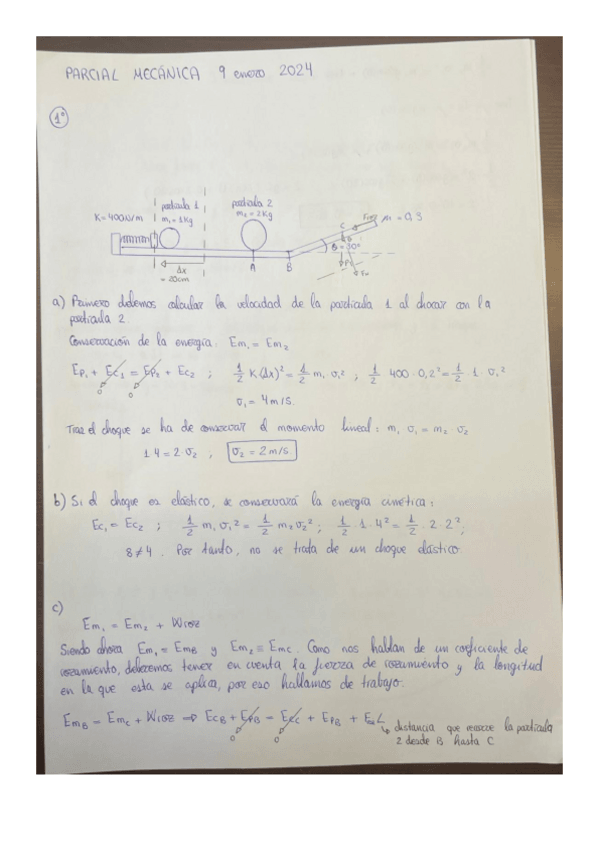 PARCIAL MECÁNICA 9 enero 2024
1º
partícula 1
m₁ = 1Kg
partícula 2
m₂ = 2Kg
K = 400N/m
μ = 0,3
C
θ = 30º
Δx
= 20cm
A
B
a) Primero debemos calcular la velocidad de la partícula 1 al chocar con la
partícula 2.
Conservación de la energía: Em₁ = Em₂
Ep₁ + Ec₁ = Ep₂ + Ec₂ ; 1/2 K(Δx)² = 1/2 m₁ v₁² ; 1/2 400·0,2² = 1/2 · 1 · v₁²
0 0
v₁ = 4m/s.
Tras el choque se ha de conservar el momento lineal: m₁ v₁ = m₂ · v₂
1·4 = 2·v₂ ; v₂ = 2m/s
b) Si el choque es elástico, se conservará la energía cinética:
Ec₁ = Ec₂ ; 1/2 m₁ v₁² = 1/2 m₂ v₂² ; 1/2 · 1 · 4² = 1/2 · 2 · 2² ;
8 ≠ 4 . Por tanto, no se trata de un choque elástico.
c)
Em₁ = Em₂ + Wroz
Siendo ahora Em₁ = EmB y Em₂ = EmC. Como nos hablan de un coeficiente de
rozamiento, deberemos tener en cuenta la fuerza de rozamiento y la longitud
en la que esta se aplica, por eso hallamos de trabajo.
EmB = EmC + Wroz ⇒ EcB + EpB = EcC + EpB + L
0 0
distancia que recorre la partícula
2 desde B hasta C